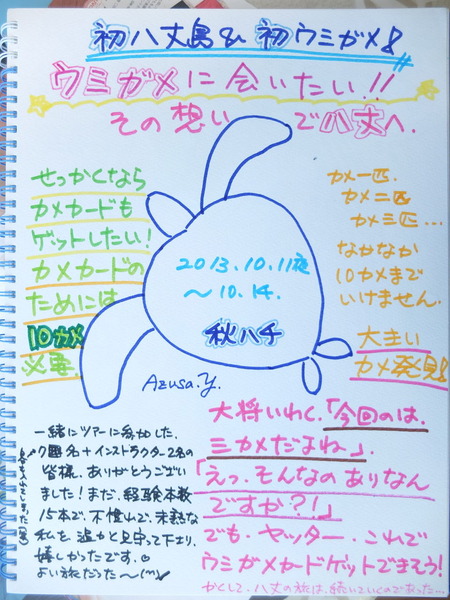 初八丈島& 初ウミガメ!
ウミガメに会いたい!!
その想いで八丈へ.
せっかくなら
カメカードも
ゲットしたい!
カメカードの
ためには
10カメ
必要.
カメ一匹.
カメ二匹
カメ三匹...
なかなか
10カメまで
いけません.
大主い
カメ発見!
2013.10.11夜
～10.14.
秋ハチ
Azusa.Y.
一緒にツアーに参加した.
名+インストラクター2名の
皆様.ありがとうござい
ました!まだ.経験本数
15本で.不慣れで.未熟な
私を温かく見守って下さり.
嬉しかったです.
よい旅だった〜
大将いわく.「今回のは.
ミカメだよね」.
「えっ.そんなのありなん
ですか?!」
でも.ヤッター.これで
ウミガメカードゲットできそう!
かくして.八丈の旅は.続いていくのであった...